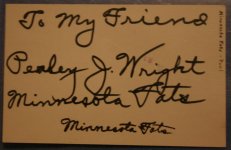 To My Friend
Pealey J. Wright
Minnesota Fats
Minnesota Fats